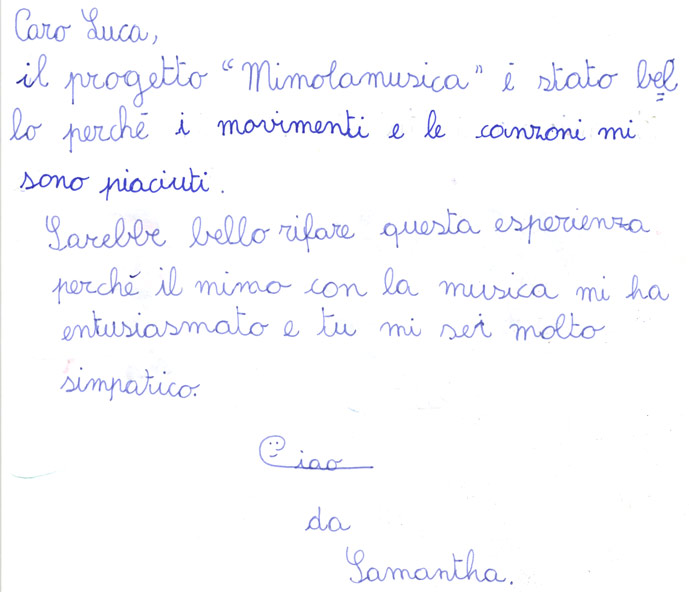 Caro Luca,
il progetto "Mimolamusica" é stato bel
lo perché i movimenti e le canzoni mi
sono piaciuti.
Sarebbe bello rifare questa esperienza
perché il mimo con la musica mi ha
entusiasmato e tu mi sei molto
simpatico.
Ciao
da
Samantha.